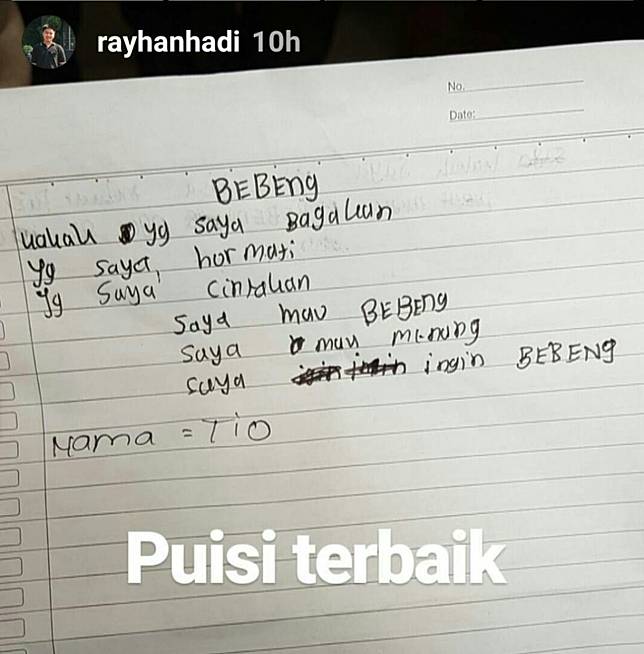 rayhanhadi 10h
No.
Date:
BEBEng
kakak yg saya Bagakan
yg saya, hormati
yg saya cintakan
saya mau BEBEng
saya mau menung
saya ingin BEBENg
Nama = Tio
Puisi terbaik